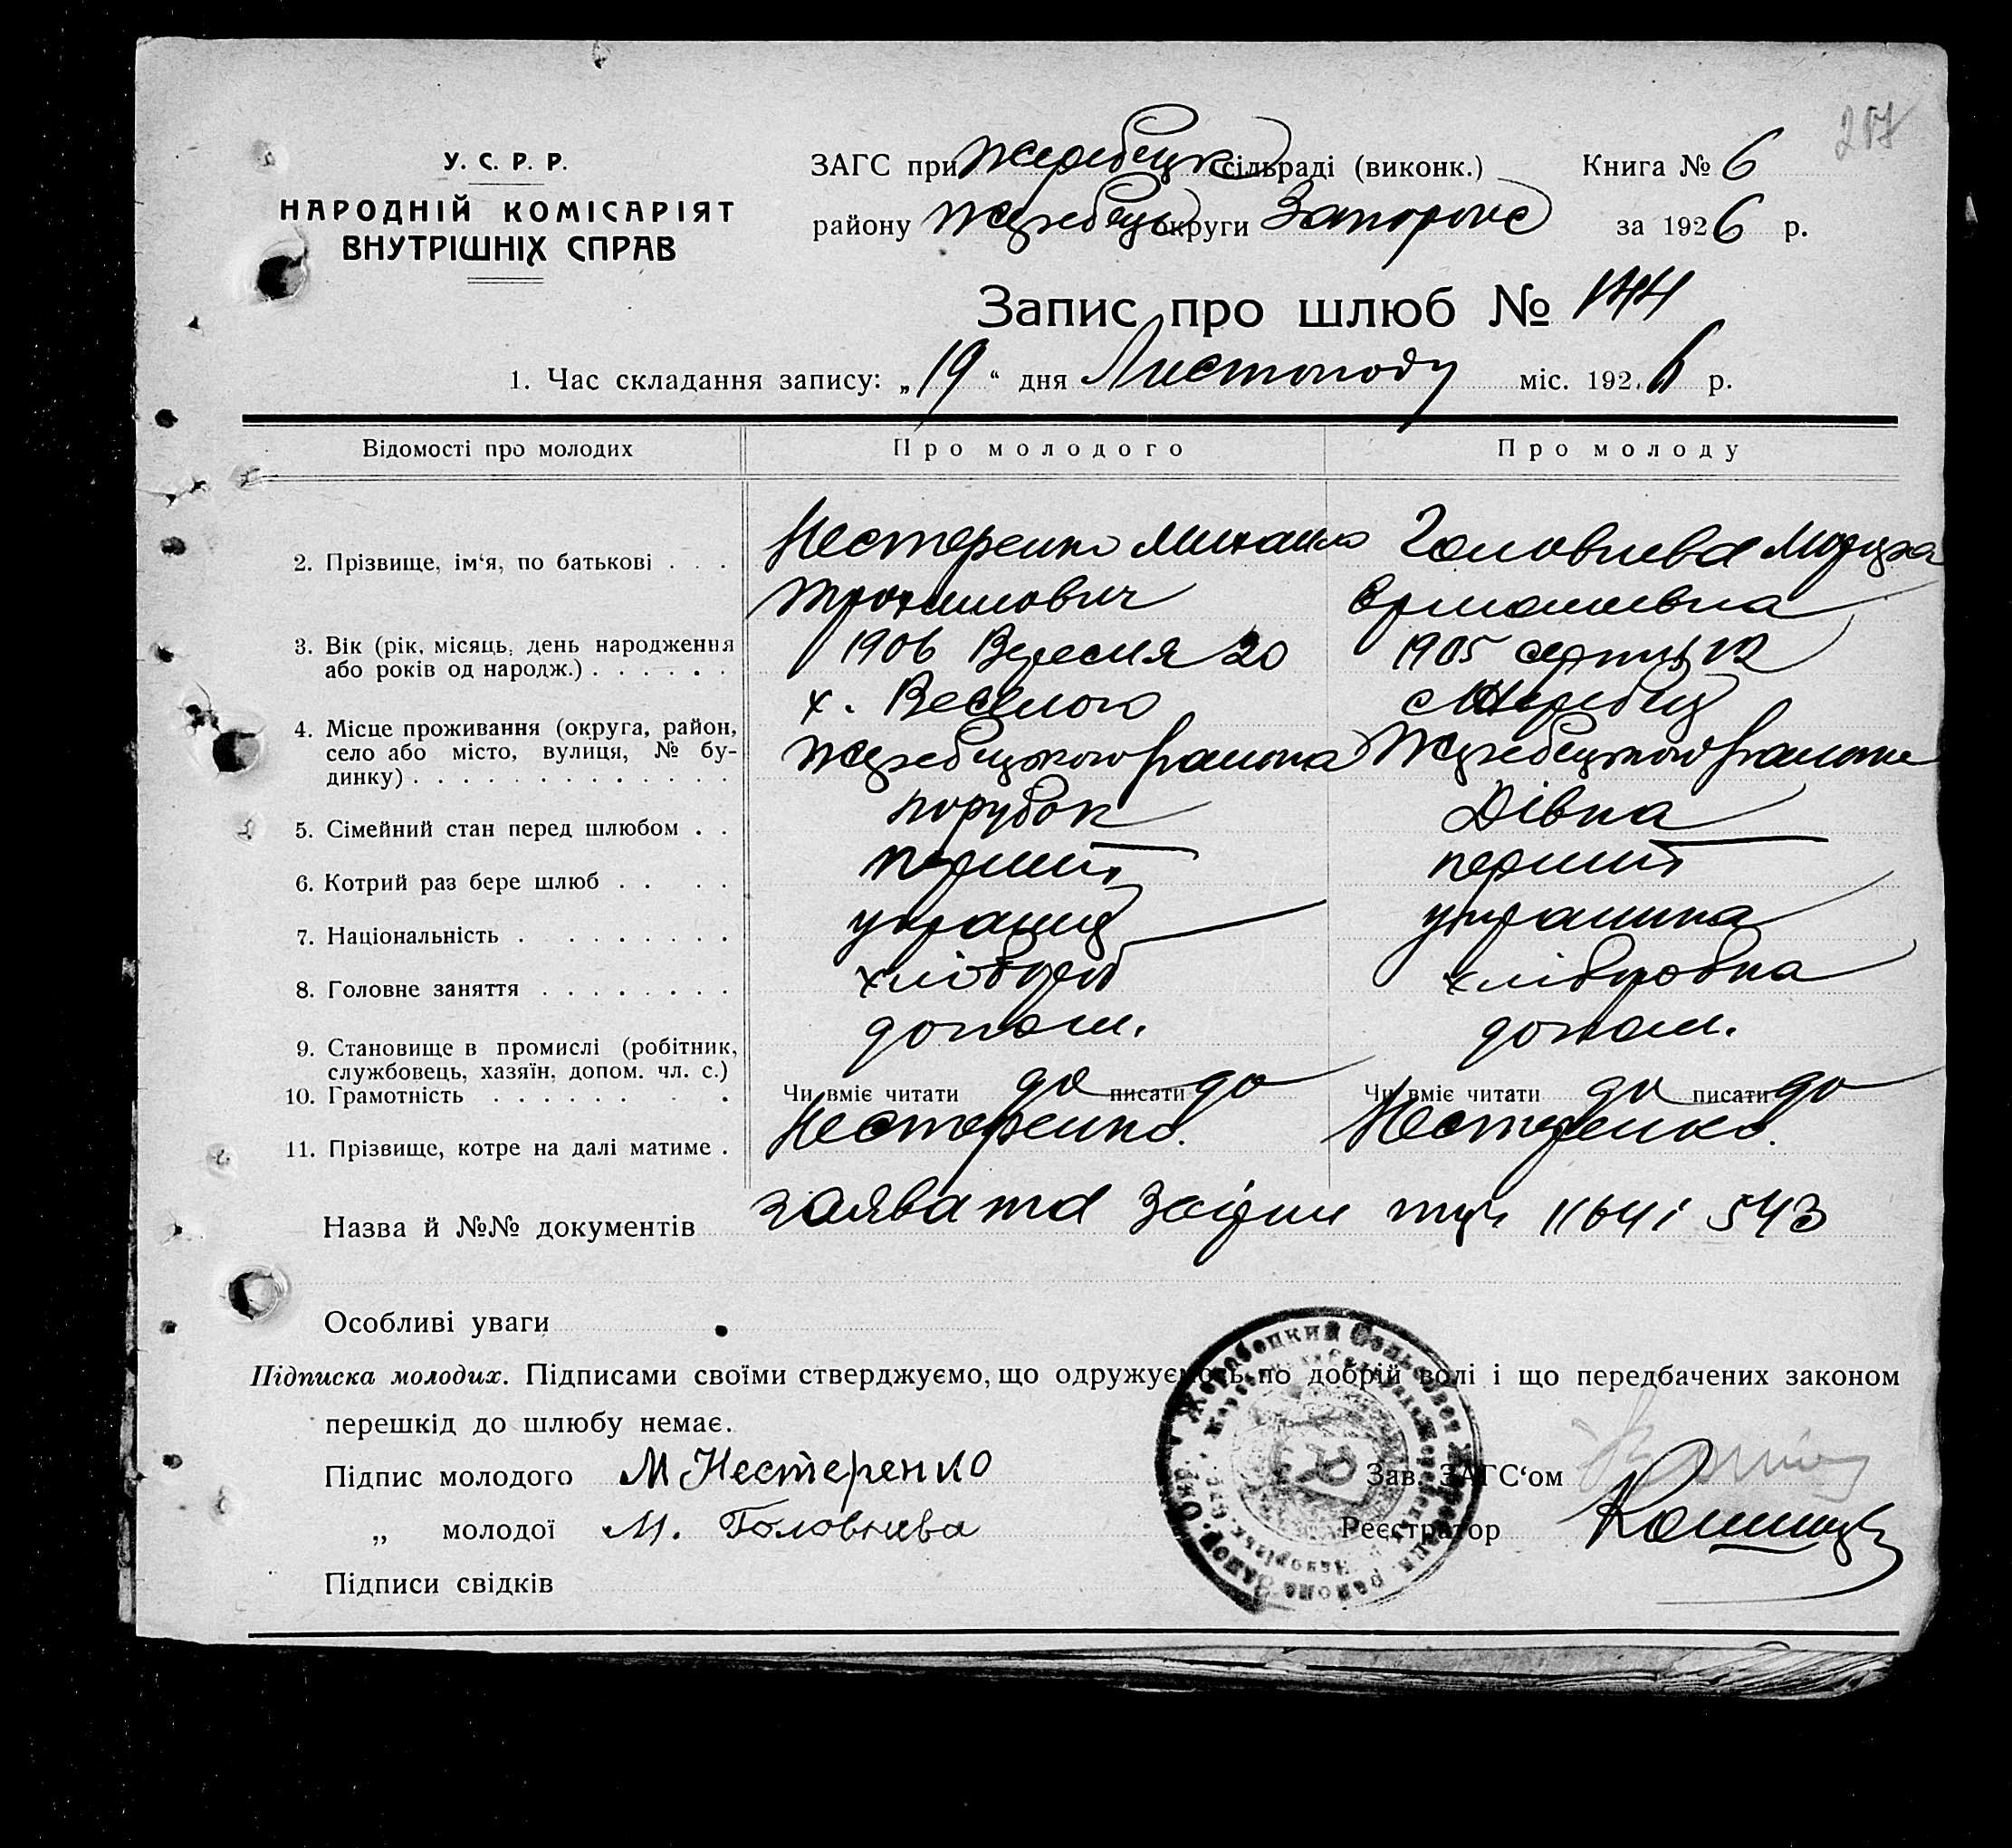 207
У. С. Р. Р.
НАРОДНІЙ КОМІСАРІЯТ
ВНУТРІШНІХ СПРАВ
ЗАГС при Жеребецк сільраді (виконк.) Книга № 6
району Жеребець округи Запорожс за 1926 р.
Запис про шлюб № 144
1. Час складання запису: „19“ дня Листопаду міс. 1926 р.
Відомості про молодих Про молодого Про молоду
2. Прізвище, ім‘я, по батькові . . . Нестеренко Михаило Головнева
Трохимович
3. Вік (рік, місяць, день народження або років од народж.) . . . . . . 1906 Вересня 20 1905 серпня 12
4. Місце проживання (округа, район, село або місто, вулиця, № будинку) . . . . . . . . . . . . . х. Веселого с Жеребець
Жеребецького раиона Жеребецького раиона
5. Сімейний стан перед шлюбом . . порубок Дівка
6. Котрий раз бере шлюб . . . . перший перший
7. Національність . . . . . . . . українець українка
8. Головне заняття . . . . . . . . хлібороб хліборобка
9. Становище в промислі (робітник, службовець, хазяїн, допом. чл. с.) допом. допом.
10. Грамотність . . . . . . . . Чи вміє читати да писати да Чи вміє читати да писати да
11. Прізвище, котре на далі матиме . Нестеренко. Нестеренко.
Назва й №№ документів заява та 1164 і 543
Особливі уваги
Підписка молодих. Підписами своїми стверджуємо, що одружуємось по добрій волі і що передбачених законом
перешкід до шлюбу немає.
Підпис молодого М Нестеренко Зав. ЗАГС‘ом
„ молодої М. Головнева Реєстратор
Підписи свідків